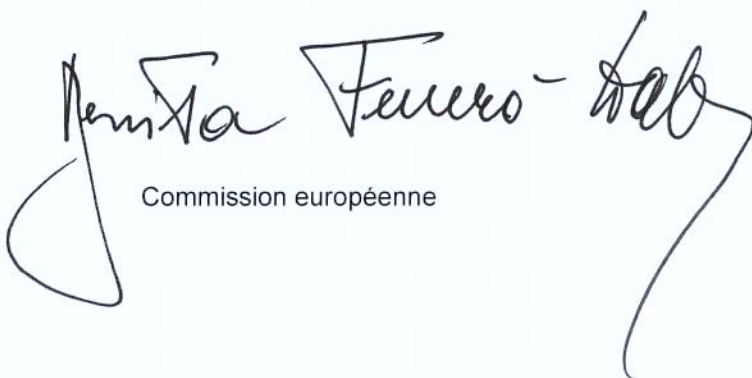 Benita Ferrero-
Commission européenne